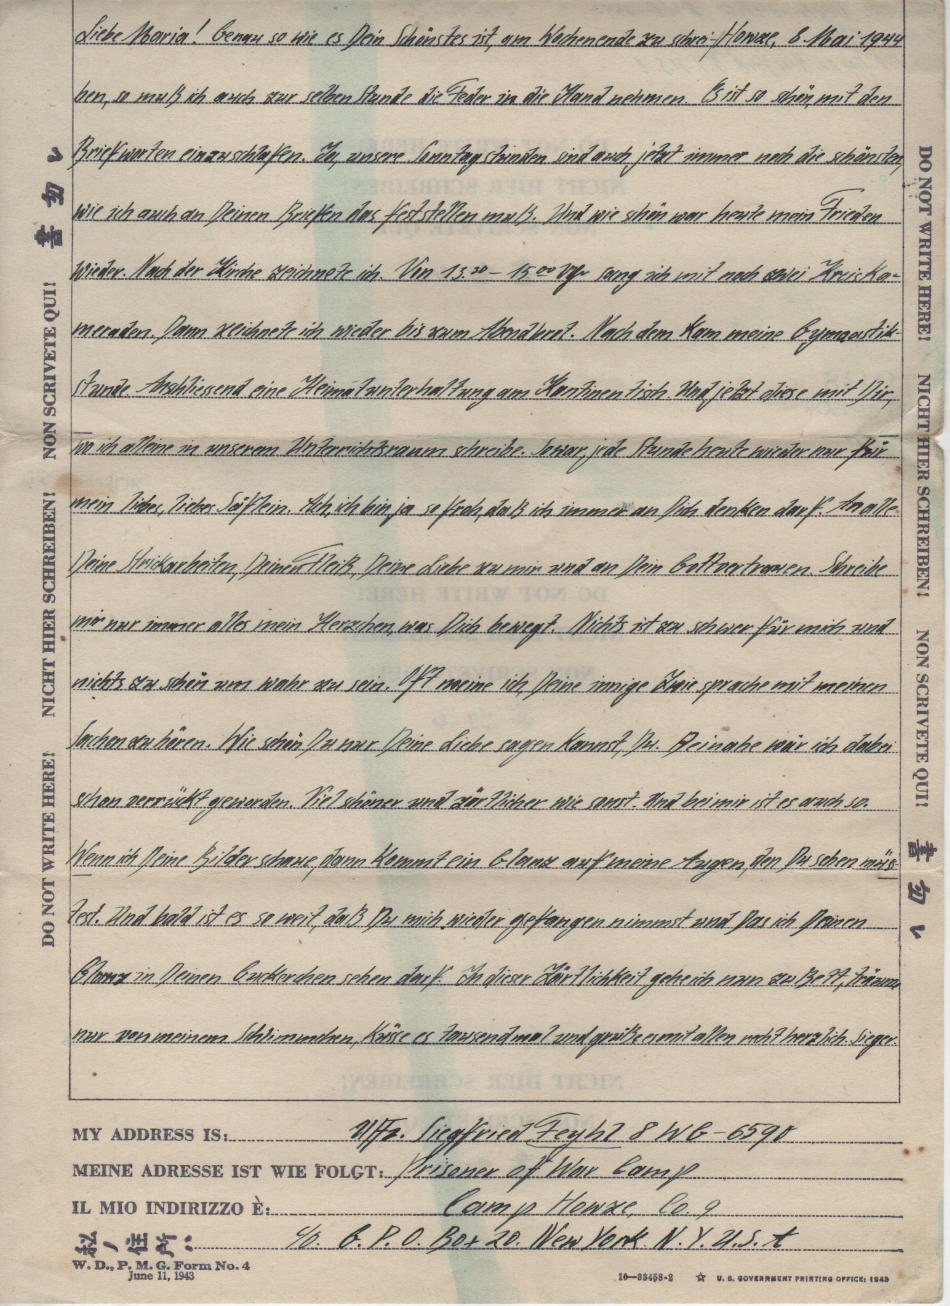 Liebe Maria! Genau so wie es Dein Schönstes ist, am Wochenende zu schrei- / Howze, 8 Mai 1944
ben, so muß ich auch zur selben Stunde die Feder in die Hand nehmen. Es ist so schön, mit den
Briefworten einzuschlafen. Ja, unsere Sonntagstunden sind auch jetzt immer noch die schönsten,
wie ich auch an Deinen Briefen das feststellen muß. Und wie schön war heute mein Frieden
wieder. Nach der Kirche zeichnete ich. Von 13.30 - 15.00 Uhr sang ich mit noch zwei Kreiska-
meraden. Dann zeichnete ich wieder bis zum Abendbrot. Nach dem kam meine Gymnastik-
stunde. Anschliessend eine Heimatunterhaltung am Kantinentisch. Und jetzt diese mit Dir,
wo ich alleine in unserem Unterrichtsraum schreibe. So war jede Stunde heute wieder nur für
mein liebes, liebes. Ach, ich bin ja so froh, daß ich immer an Dich denken darf. An alle
Deine Strickarbeiten, Deinen Fleiß, Deine Liebe zu mir und an Dein Gottvertrauen. Schreibe
mir nur immer alles mein Herzchen, was Dich bewegt. Nichts ist zu schwer für mich und
nichts zu schön um wahr zu sein. Oft meine ich, Deine innige Zwiesprache mit meinen
Sachen zu hören. Wie schön Du nur Deine Liebe sagen kannst, Du. Beinahe wär ich dabei
schon verrückt geworden. Viel schöner und zärtlicher wie sonst. Und bei mir ist es auch so.
Wenn ich Deine Bilder schaue, dann kommt ein Glanz auf meine Augen, den Du sehen müs-
test. Und bald ist es so weit, daß Du mich wieder gefangen nimmst und das ich Deinen
Glanz in Deinen Guckerchen sehen darf. In dieser Zärtlichkeit gehe ich nun zu Bett, träume
nur von meinem, Küsse es tausendmal und grüße es mit allen recht herzlich. Sieger.
MY ADDRESS IS: Uffz. Siegfried Feyhl 8 WG-6590
MEINE ADRESSE IST WIE FOLGT: Prisoner of War Camp
IL MIO INDIRIZZO È: Camp Howze, Co. 9
私ノ住所ハ: c/o. G. P. O. Box 20. New York N.Y. U.S.A
W. D., P. M. G. Form No. 4
June 11, 1943
16—33458-2 ☆ U. S. GOVERNMENT PRINTING OFFICE: 1943
DO NOT WRITE HERE! NICHT HIER SCHREIBEN! NON SCRIVETE QUI! 書クカ
DO NOT WRITE HERE! NICHT HIER SCHREIBEN! NON SCRIVETE QUI!